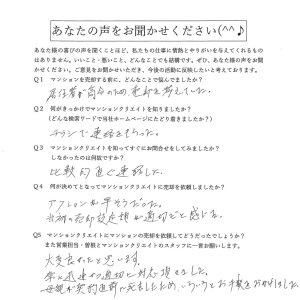 あなたの声をお聞かせください(^^♪
あなた様の喜びの声を聞くことほど、私たちの仕事に情熱とやりがいを与えてくれるもの
はありません。いいこと・悪いこと、どんなことでも結構です。ぜひ、あなた様の声をお聞
かせください。ご意見をお聞かせいただき、今後の活動に反映したいと考えております。
Q1 マンションを売却する前に、どんなことで悩んでましたか?
売却を考えていた。
Q2 何がきっかけでマンションクリエイトを知りましたか?
(どんな検索ワードで当社ホームページにたどり着きましたか?)
チラシで連絡をもらった。
Q3 マンションクリエイトを知ってすぐにお問合せをしてみましたか?
しなかったのは何故ですか?
比較的直ぐ連絡した。
Q4 何が決めてとなってマンションクリエイトに売却を依頼しましたか?
アクションが早そうだった。
当初の売却設定が適切だと感じた。
Q5 マンションクリエイトにマンションの売却を依頼してどうだったでしょうか?
また営業担当・曽根とマンションクリエイトのスタッフに一言お願いします。
大変良かったと思います。
迅速かつ適切に対応頂きました。
お手数をおかけしました。